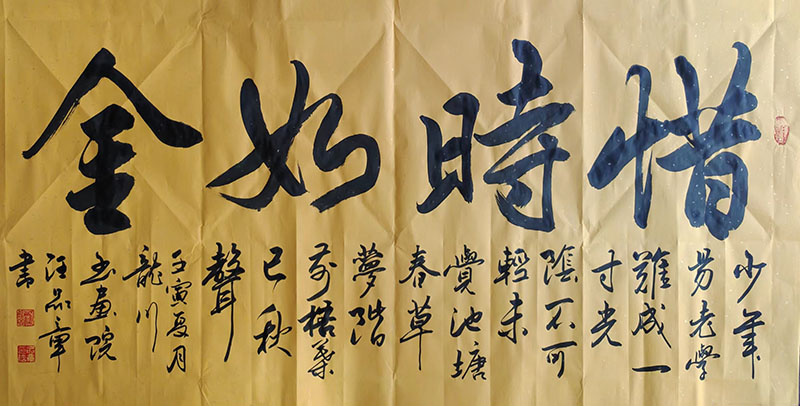 惜時如金
少年
易老學
難成一
寸光
陰不可
輕未
覺池塘
春草
夢階
前梧葉
已秋
聲
壬寅夏月
龍川
書畫院
汪品章
書